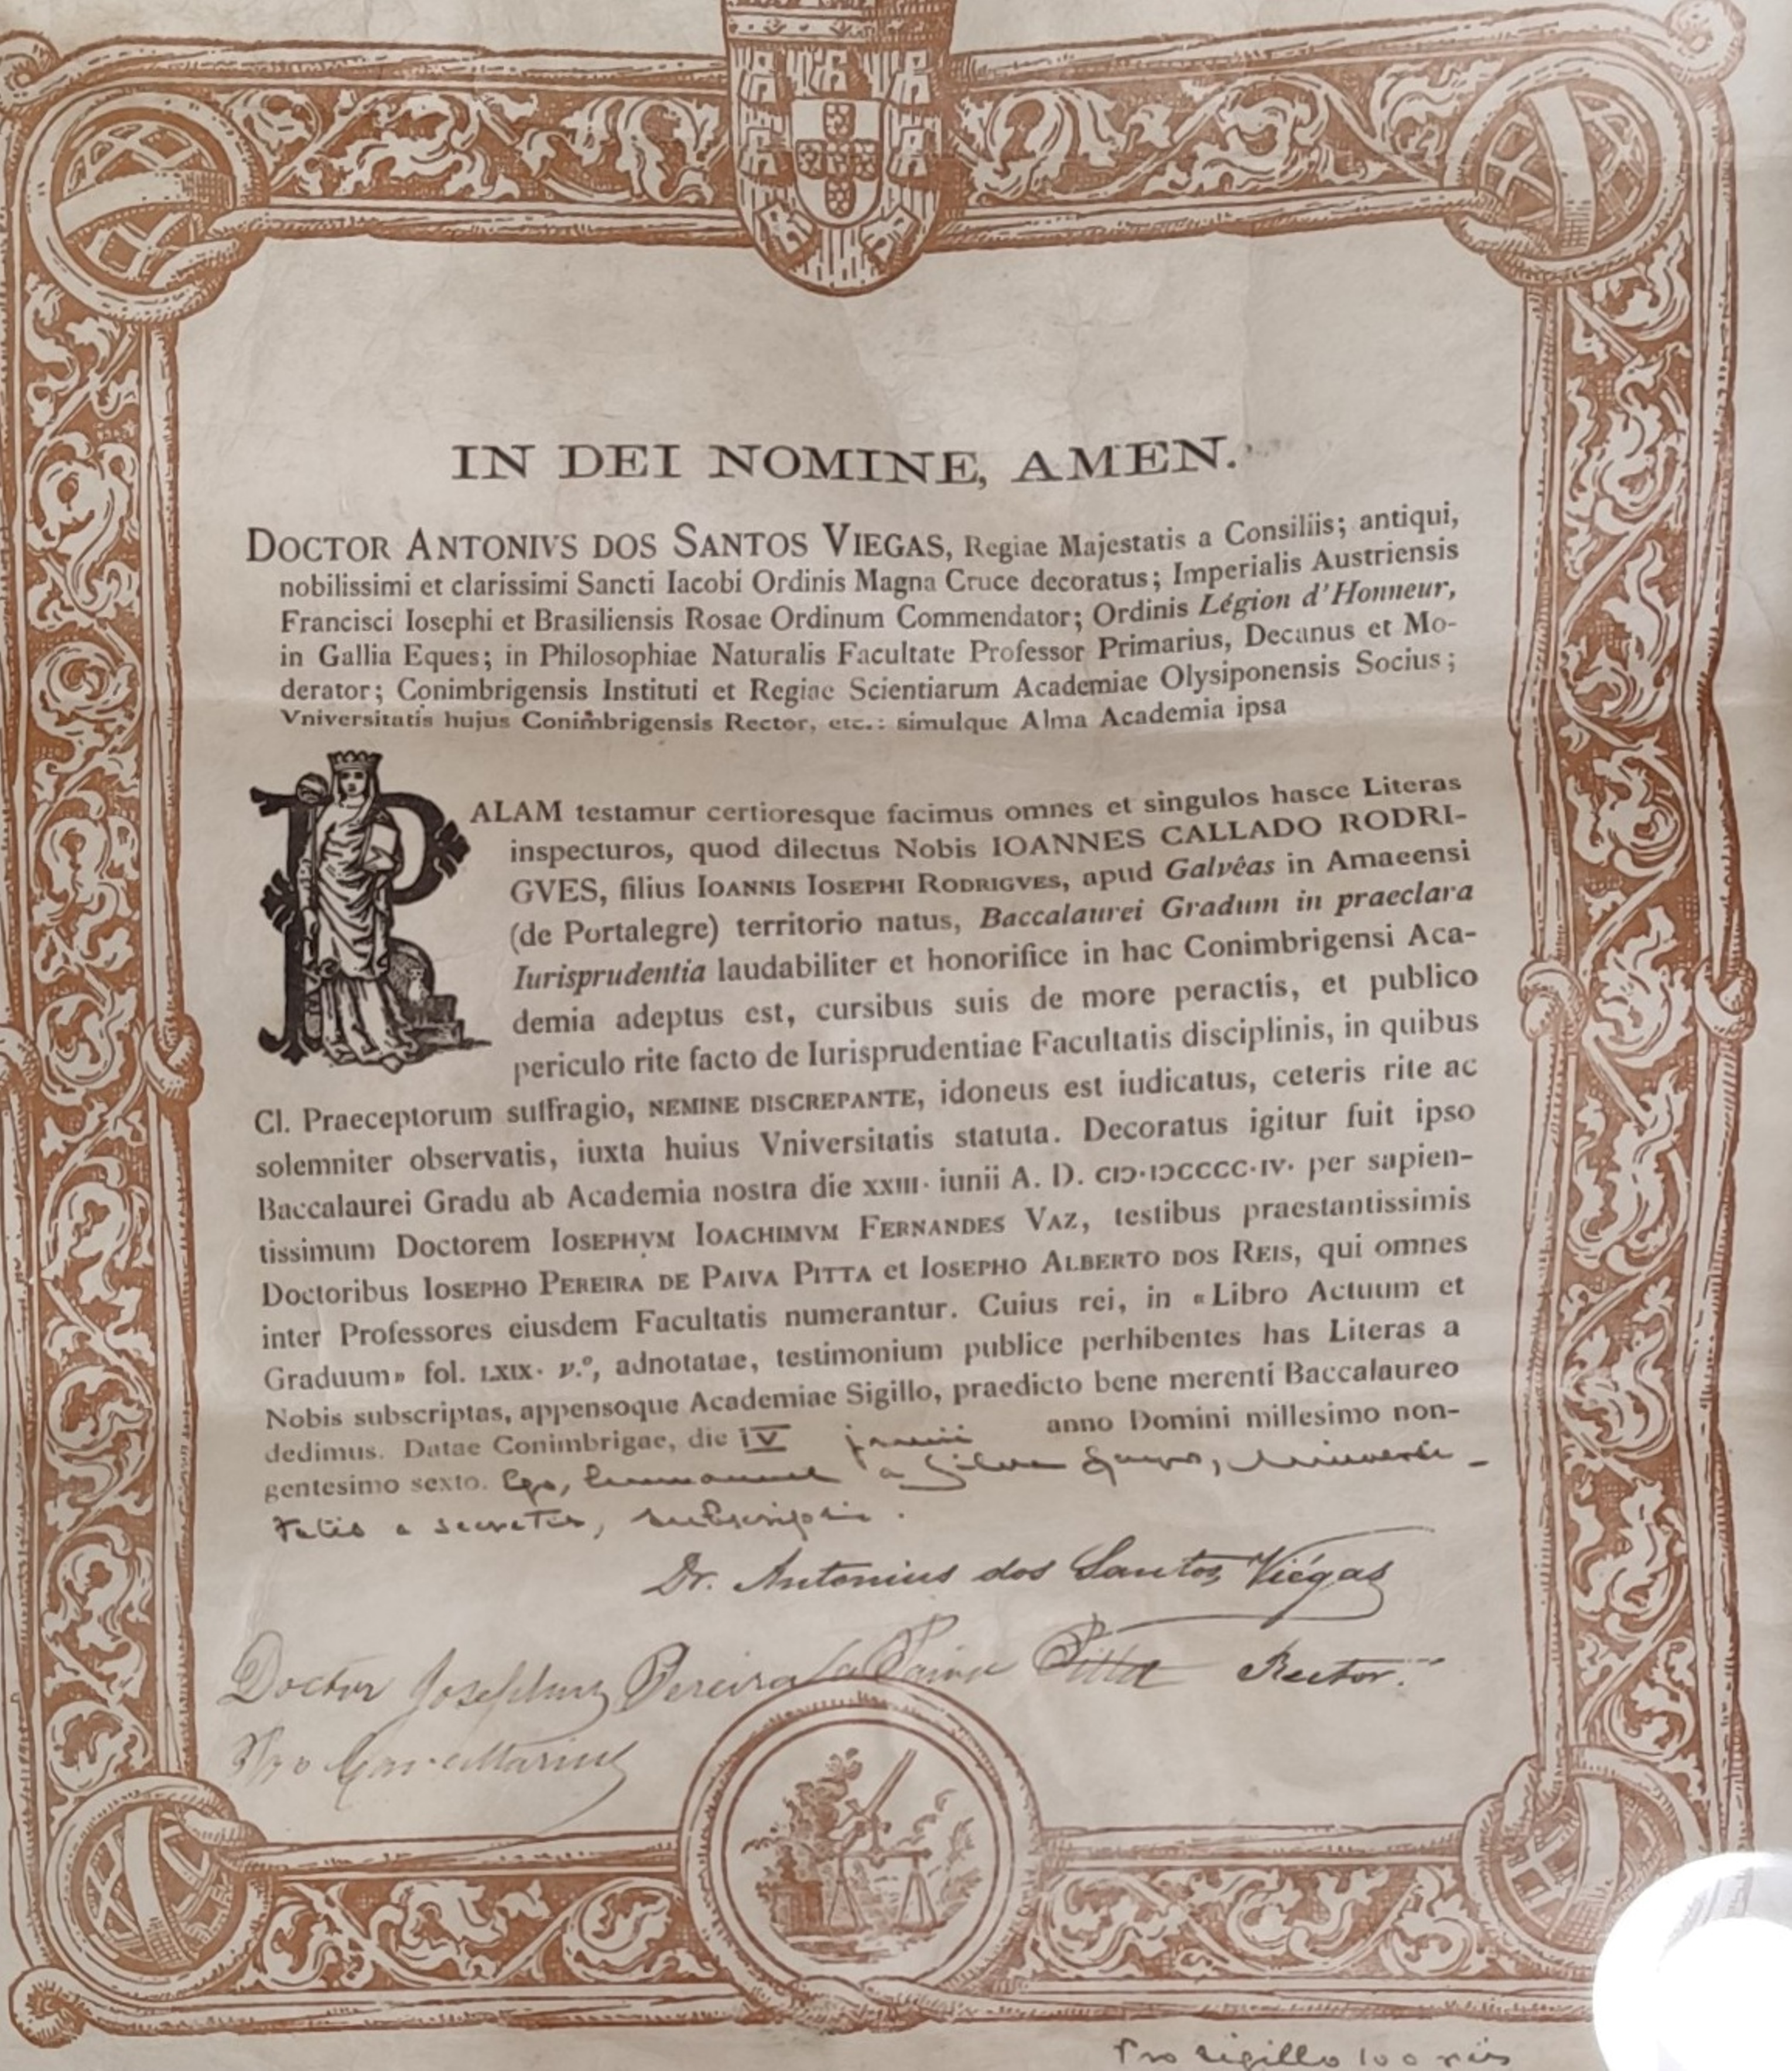 IN DEI NOMINE, AMEN.
DOCTOR ANTONIVS DOS SANTOS VIEGAS, Regiae Majestatis a Consiliis; antiqui,
nobilissimi et clarissimi Sancti Iacobi Ordinis Magna Cruce decoratus; Imperialis Austriensis
Francisci Iosephi et Brasiliensis Rosae Ordinum Commendator; Ordinis Légion d'Honneur,
in Gallia Eques; in Philosophiae Naturalis Facultate Professor Primarius, Decanus et Mo-
derator; Conimbrigensis Instituti et Regiae Scientiarum Academiae Olysiponensis Socius;
Vniversitatis hujus Conimbrigensis Rector, etc.: simulque Alma Academia ipsa
PALAM testamur certioresque facimus omnes et singulos hasce Literas
inspecturos, quod dilectus Nobis IOANNES CALLADO RODRI-
GVES, filius IOANNIS IOSEPHI RODRIGVES, apud Galvêas in Amaeensi
(de Portalegre) territorio natus, Baccalaurei Gradum in praeclara
Iurisprudentia laudabiliter et honorifice in hac Conimbrigensi Aca-
demia adeptus est, cursibus suis de more peractis, et publico
periculo rite facto de Iurisprudentiae Facultatis disciplinis, in quibus
Cl. Praeceptorum suffragio, NEMINE DISCREPANTE, idoneus est iudicatus, ceteris rite ac
solemniter observatis, iuxta huius Vniversitatis statuta. Decoratus igitur fuit ipso
Baccalaurei Gradu ab Academia nostra die XXIII· iunii A. D. CIↃ·IↃCCCC·IV· per sapien-
tissimum Doctorem IOSEPHVM IOACHIMVM FERNANDES VAZ, testibus praestantissimis
Doctoribus IOSEPHO PEREIRA DE PAIVA PITTA et IOSEPHO ALBERTO DOS REIS, qui omnes
inter Professores eiusdem Facultatis numerantur. Cuius rei, in «Libro Actuum et
Graduum» fol. LXIX· v.º, adnotatae, testimonium publice perhibentes has Literas a
Nobis subscriptas, appensoque Academiae Sigillo, praedicto bene merenti Baccalaureo
dedimus. Datae Conimbrigae, die IV junii anno Domini millesimo non-
gentesimo sexto. Ego, Emmanuel a Silva Gayo, Universi-
tatis a secretis, subscripsi.
Dr. Antonius dos Santos Viégas
Doctor Josephus Pereira da Paiva Pitta Rector.
Pro sigillo 100 réis